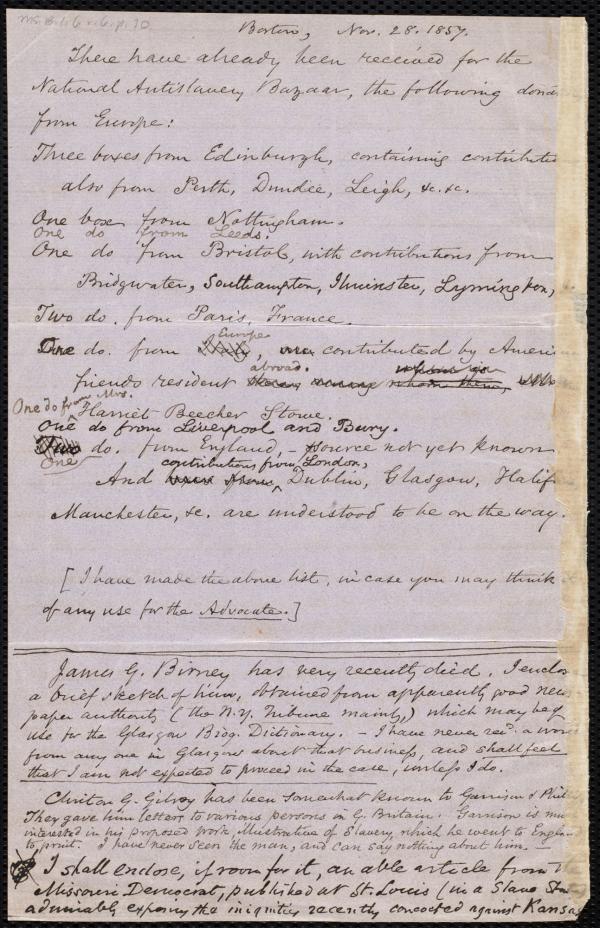 Ms. B. 1. 6 v. 6, p. 70
Boston, Nov. 28. 1857.
There have already been received for the
National Antislavery Bazaar, the following dona
from Europe:
Three boxes from Edinburgh, containing contributi
also from Perth, Dundee, Leigh, &c. &c.
One box from Nottingham.
One do from Leeds.
One do from Bristol, with contributions from
Bridgwater, Southampton, Ilminster, Lymington,
Two do. from Paris, France.
Europe
One do. from , contributed by Ameri
abroad.
friends resident
One do from Mrs.
Harriet Beecher Stowe.
One do from Liverpool and Bury.
Two do. from England, – source not yet known
One contributions from London,
And Dublin, Glasgow, Halif
Manchester, &c. are understood to be on the way.
[I have made the above list, in case you may think
of any use for the Advocate.]
James G. Birney has very recently died. I enclos
a brief sketch of him, obtained from apparently good new
paper authority (the N.Y. Tribune mainly,) which may be of
use for the Glasgow Biog. Dictionary. – I have never recd. a word
from any one in Glasgow about that business, and shall feel
that I am not expected to proceed in the case, unless I do.
Clinton G. Gilroy has been somewhat known to Garrison & Phill
They gave him letters to various persons in G. Britain. Garrison is mu
interested in his proposed work, illustrative of Slavery, which he went to Engla
to print. I have never seen the man, and can say nothing about him. –
I shall enclose, if room for it, an able article from
Missouri Democrat, published at St. Louis (in a Slave Sta
admirably exposing the iniquities recently concocted against Kansas